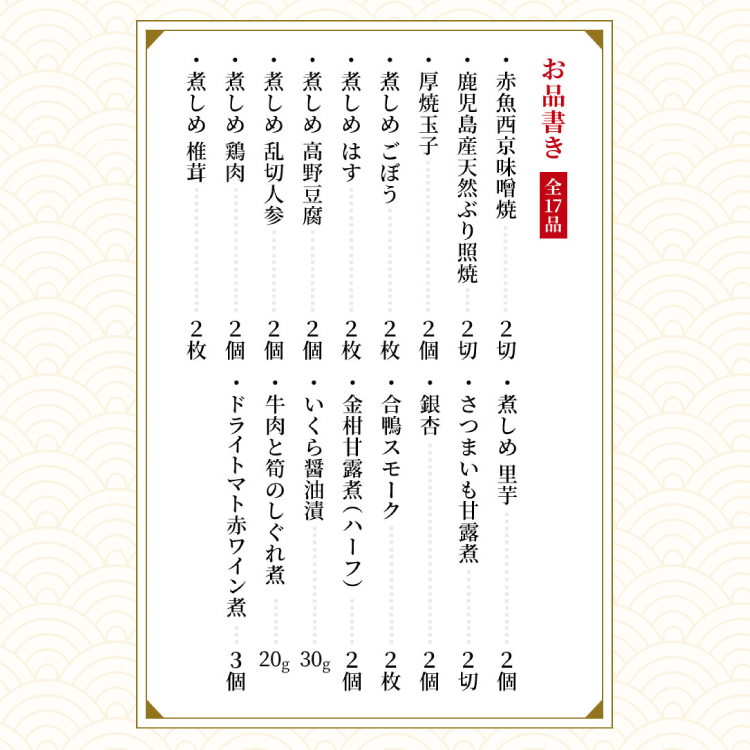 お品書き 全17品
・赤魚西京味噌焼 2切
・鹿児島産天然ぶり照焼 2切
・厚焼玉子 2個
・煮しめ ごぼう 2枚
・煮しめ はす 2枚
・煮しめ 高野豆腐 2個
・煮しめ 乱切人参 2個
・煮しめ 鶏肉 2個
・煮しめ 椎茸 2枚
・煮しめ 里芋 2個
・さつまいも甘露煮 2切
・銀杏 2個
・合鴨スモーク 2枚
・金柑甘露煮(ハーフ) 2個
・いくら醤油漬 30g
・牛肉と筍のしぐれ煮 20g
・ドライトマト赤ワイン煮 3個